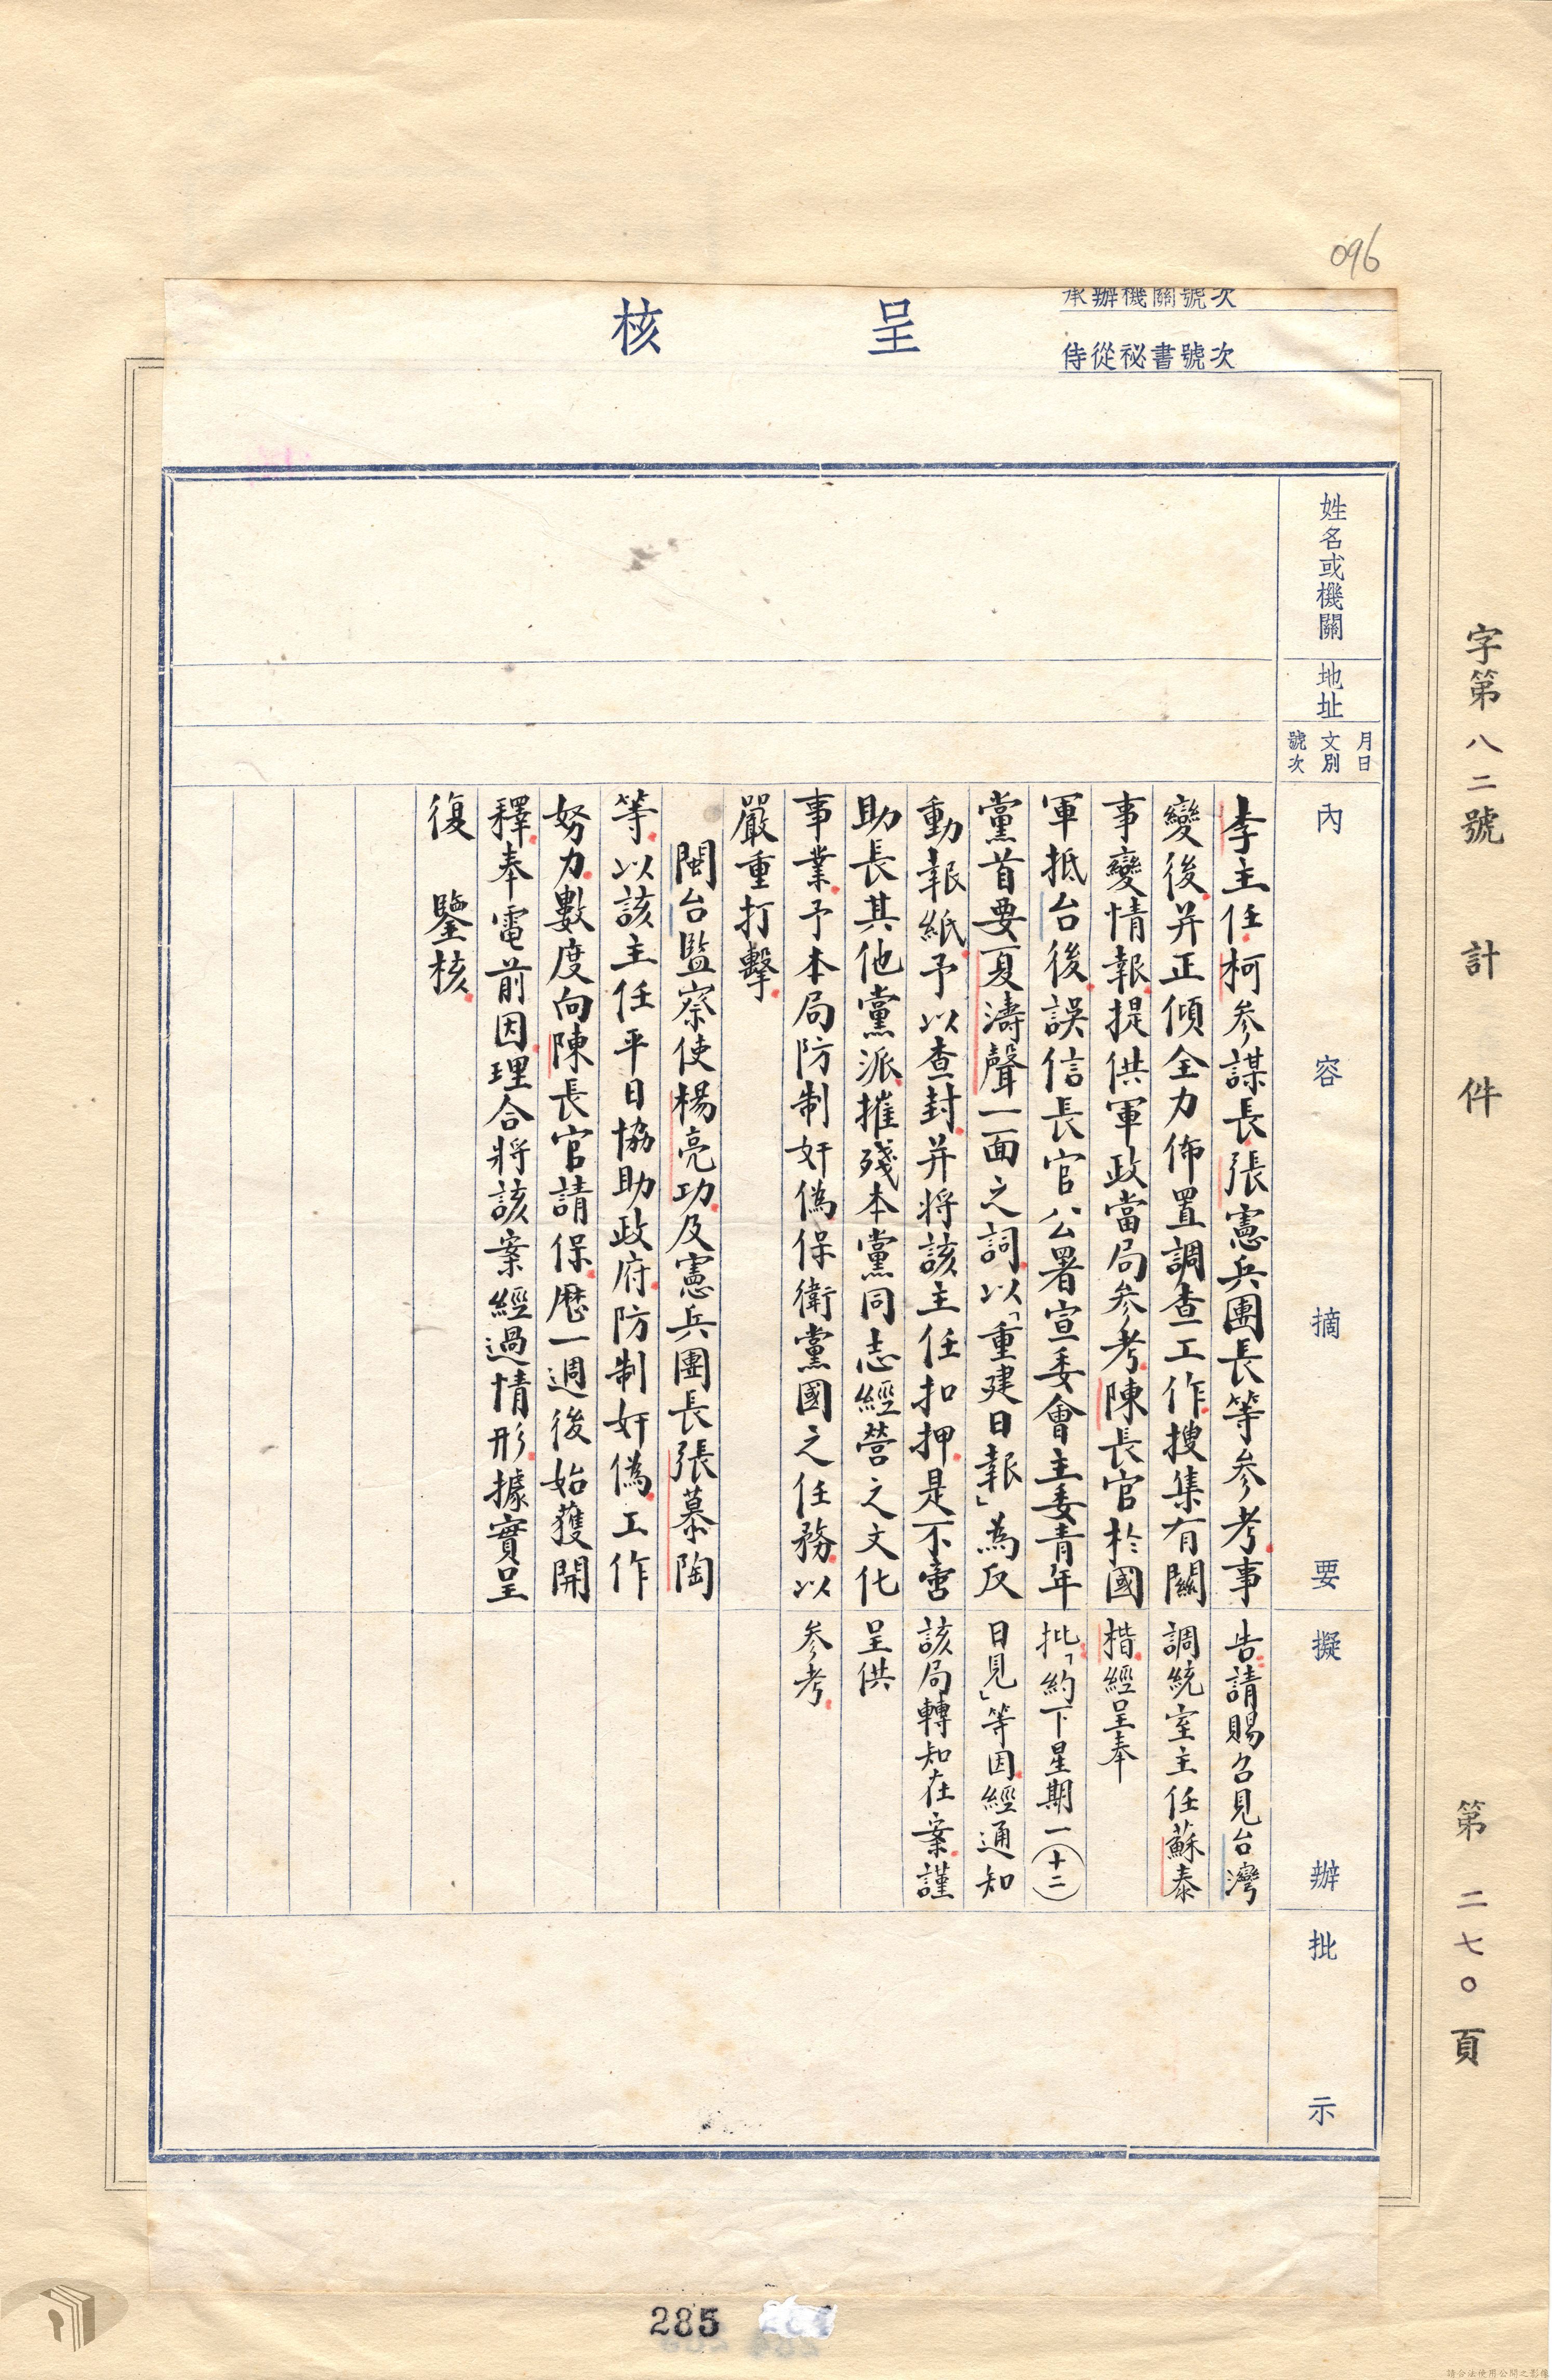 096
承辦機關號次
侍從祕書號次
呈核
字第八二號計件
第二七〇頁
姓名或機關
地址
月日
文別
號次
內容摘要
擬辦
批示
李主任柯參謀長張憲兵團長等參考事
變後并正傾全力佈置調查工作搜集有關
事變情報提供軍政當局參考陳長官於國
軍抵台後誤信長官公署宣委會主委青年
黨首要夏濤聲一面之詞以「重建日報」為反
動報紙予以查封并將該主任扣押是不啻
助長其他黨派摧殘本黨同志經營之文化
事業予本局防制奸偽保衛黨國之任務以
嚴重打擊
閩台監察使楊亮功及憲兵團長張慕陶
等以該主任平日協助政府防制奸偽工作
努力數度向陳長官請保歷一週後始獲開
釋奉電前因理合將該案經過情形據實呈
復 鑒核
告請賜召見台灣
調統室主任蘇泰
楷經呈奉
批「約下星期一(十二)
日見」等因經通知
該局轉知在案謹
呈供
參考
285
請合法使用公開之影像